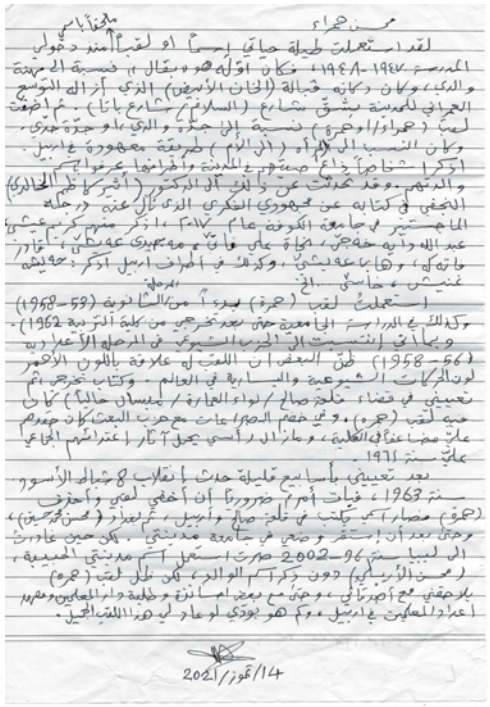 محسن حمراء
ملحقاً باسمي
لقد استعملت طيلة حياتي إسماً أو لقباً منذ دخولي
المدرسة ١٩٤٧-١٩٤٨، فكان أوله هو «بقال»، نسبة الى مهنة
والدي، وكان دكانه قبالة (الخان الأسفر) الذي أزاله التوسع
العمراني للمدينة بشق شارع (السلافة/شارع باتا). ثم اضفت
لقب (حمراء/اوحمرة) نسبة إلى جدة والدي، او جدة جدي.
وكان النسب الى المرأه (الى الأم) طريقة معهودة في اربيل.
اذكر اشخاصاً ذاع صيتهم في المدينة وأطرافها عرفوا باسم
والدتهم. وقد تحدثت عن ذالك الى الدكتور (أشير كاظم الخالدي)
النجفي في كتابه عن مجهودي الفكري الذي نال عنه درجة
الماجستير في جامعة الكوفة عام ٢٠١٧، اذكر منهم كريم عيشي،
عبدالله دايه خه جي، نجاة علي فاتى، مه جيدى عه يشى، قادر
فاته ك، وهاب عه يشى، وكذلك في أطراف اربيل اذكر: حه يشه
غنيش، خاسى.. الخ
استعملتُ لقب (حمرة) بدءاً من المرحلة الثانوية (59-1958)
وكذلك في الدراسة الجامعية حتى بعد تخرجي من كلية التربية 1962).
وبما أني إنتسبت الى الحزب الشيوعي في المرحلة الأعدادية
(56-1958) ظنّ البعض ان اللقب له علاقة باللون الأحمر
لون الحركات الشيوعية واليسارية في العالم. وكتاب تخرجي ثم
تعييني في قضاء قلعة صالح/لواء العمارة/ميسان حالياً) كان
فيه لقب (حمره). وفي خضم الصراعات مع حزب البعث كان حقدهم
عليّ مضاعفاً في الكلية، وما زال رأسي يحمل آثار إعتدائهم الجماعي
عليّ سنة ١٩٦١.
بعد تعييني بأسابيع قليلة حدث إنقلاب 8 شباط الأسود
سنة 1963، فبات أمراً ضرورياً أن أخفي لقبي وأحذف
(حمرة) فصار اسمي يكتب في قلعة صالح وأربيل، ثم بغداد (محسن محمد حسين)،
وحتى بعد أن إستقر وضعي في جامعة مدينتي. لكن حين غادرت
الى ليبيا سنة 96-2002 صرت استعمل اسم مدينتي الحبيبة،
(محسن الأربيلي) دون ذكر اسم الوالد، لكن ظل لقب (حمره)
يلاحقني مع أصدقائي، وحتى مع بعض اساتذة وطلبة دار المعلمين ومعهد
اعداد المعلمين في اربيل، وكم هو بودي لو عاد لي هذا اللقب الجميل.
14/تموز/2021